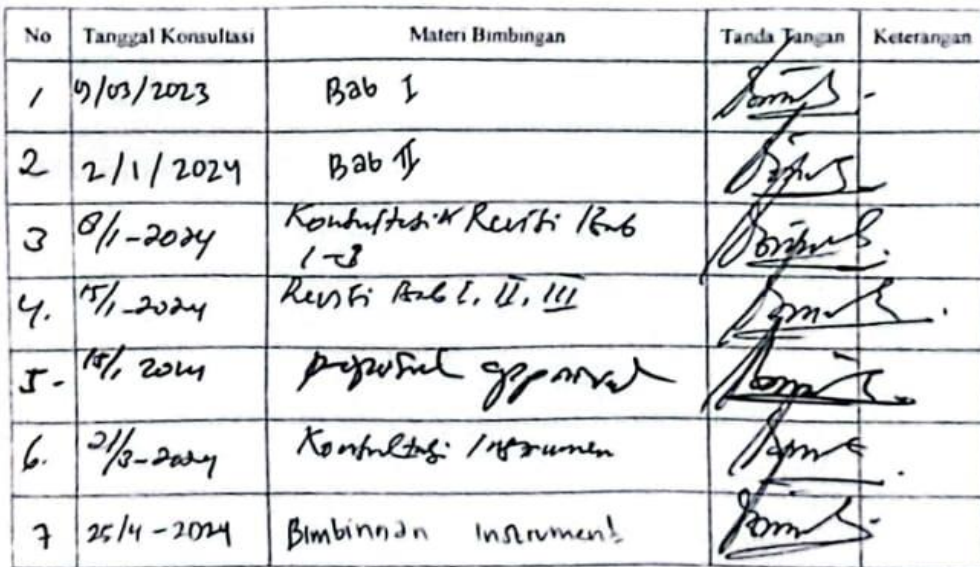 No Tanggal Konsultasi Materi Bimbingan Tanda Tangan Keterangan
1 9/03/2023 Bab I
2 2/1/2024 Bab II
3 8/1-2024 Konsultasi Revisi Bab
1-3
4. 15/1-2024 Revisi Bab I, II, III
5- 18/1 2024 proposal approval
6. 21/3-2024 Konsultasi Instrumen
7 25/4-2024 Bimbinnan Instrument